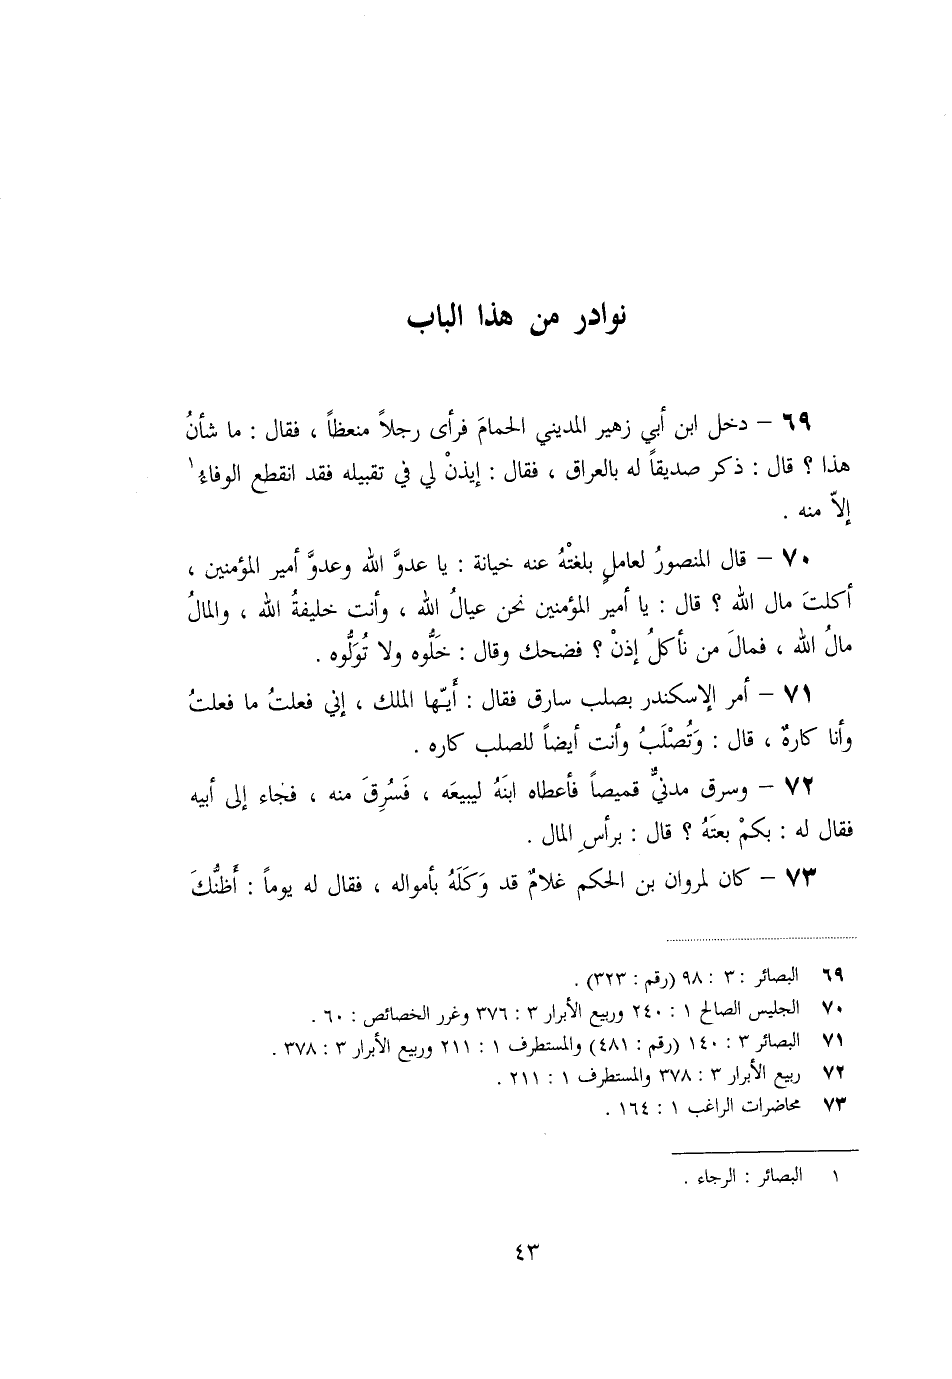 نوادر من هذا الباب
٦٩ – دخل ابن أبي زهير المديني الحمامَ فرأى رجلاً منعظاً ، فقال : ما شأنُ
هذا ؟ قال : ذكر صديقاً له بالعراق ، فقال : إيذنْ لي في تقبيله فقد انقطع الوفاءُ١
إلاّ منه .
٧٠ – قال المنصورُ لعاملٍ بلغتْهُ عنه خيانة : يا عدوَّ الله وعدوَّ أمير المؤمنين ،
أكلتَ مال الله ؟ قال : يا أمير المؤمنين نحن عيالُ الله ، وأنت خليفةُ الله ، والمالُ
مالُ الله ، فمالَ من نأكلُ إذنْ ؟ فضحك وقال : خَلُّوه ولا تُوَلُّوه .
٧١ – أمر الإسكندر بصلب سارق فقال : أَيّها الملك ، إني فعلتُ ما فعلتُ
وأنا كارهٌ ، قال : وَتُصْلَبُ وأنت أيضاً للصلب كاره .
٧٢ – وسرق مدنيٌّ قميصاً فأعطاه ابنَهُ ليبيعَه ، فَسُرِقَ منه ، فجاء إلى أبيه
فقال له : بكمْ بعتَهُ ؟ قال : برأسِ المال .
٧٣ – كان لمروان بن الحكم غلامٌ قد وَكَلَهُ بأمواله ، فقال له يوماً : أَظنُّكَ
٦٩ البصائر : ٣ : ٩٨ (رقم : ٣٢٣) .
٧٠ الجليس الصالح ١ : ٢٤٠ وربيع الأبرار ٣ : ٣٧٦ وغرر الخصائص : ٦٠ .
٧١ البصائر ٣ : ١٤٠ (رقم : ٤٨١) والمستطرف ١ : ٢١١ وربيع الأبرار ٣ : ٣٧٨ .
٧٢ ربيع الأبرار ٣ : ٣٧٨ والمستطرف ١ : ٢١١ .
٧٣ محاضرات الراغب ١ : ١٦٤ .
١ البصائر : الرجاء .
٤٣